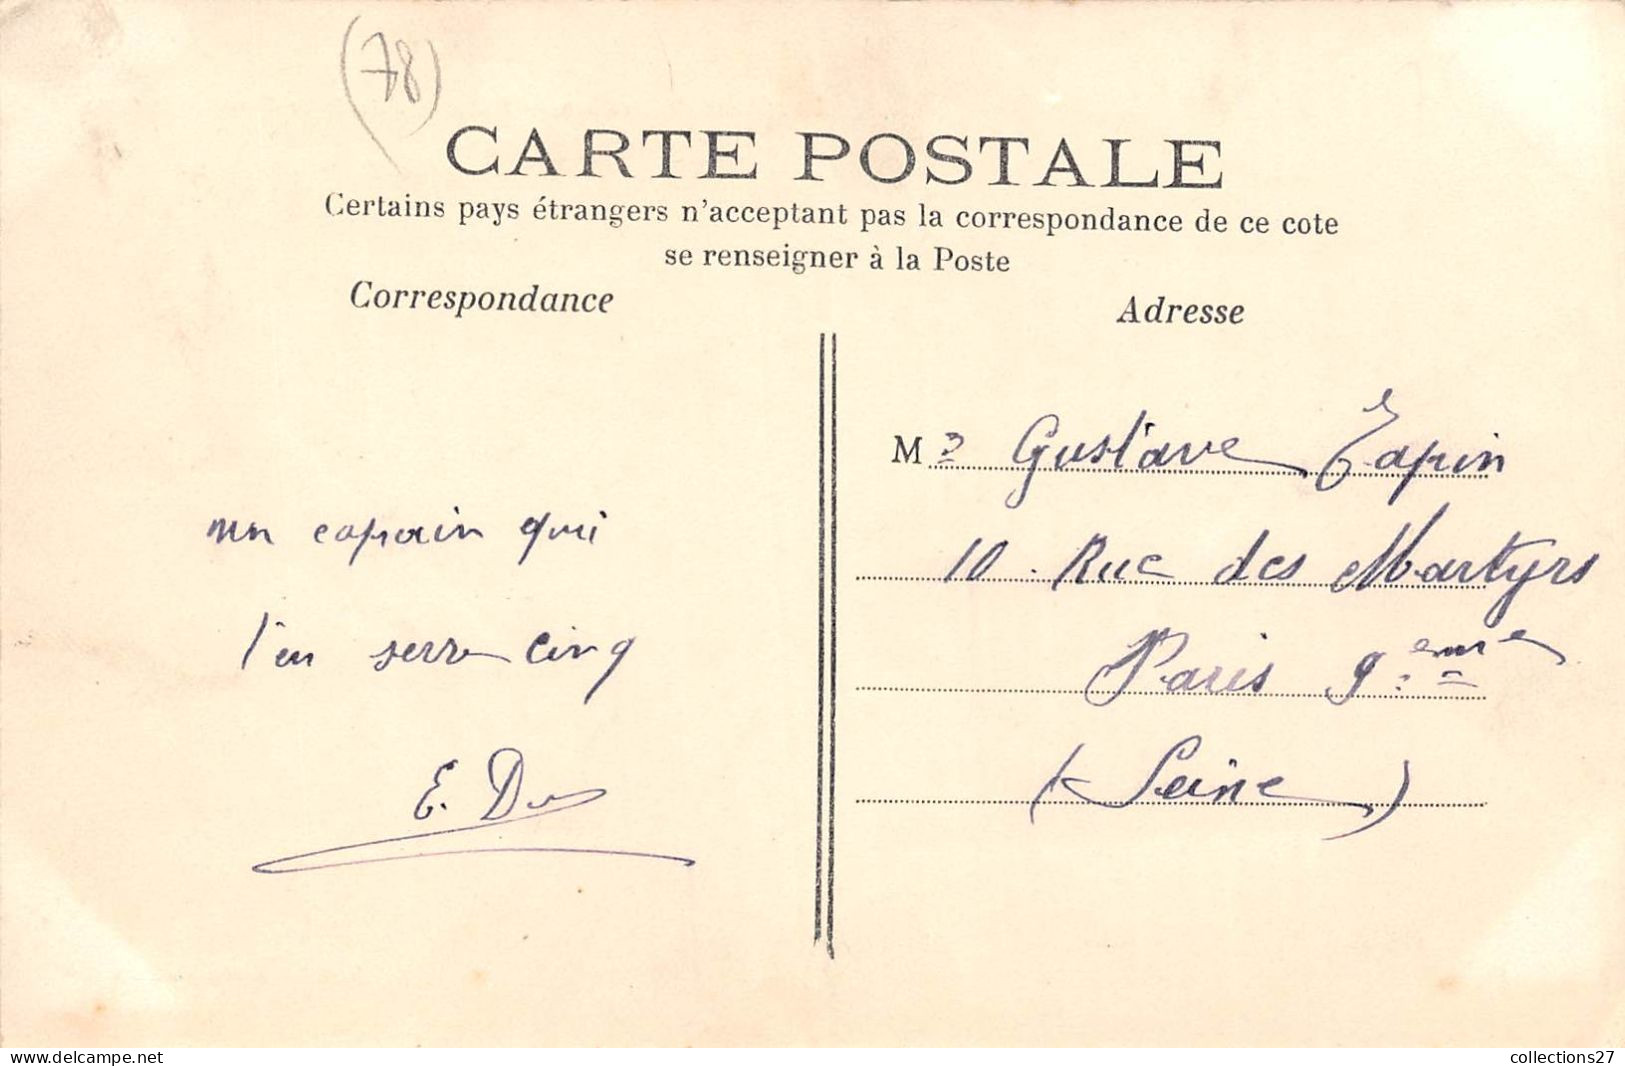 (78)
CARTE POSTALE
Certains pays étrangers n'acceptant pas la correspondance de ce cote
se renseigner à la Poste
Correspondance
Adresse
un copain qui
l'en serre cinq
E. D
Mr Gustave Tapin
10. Rue des Martyrs
Paris 9eme
(Seine)
www.delcampe.net
collections27